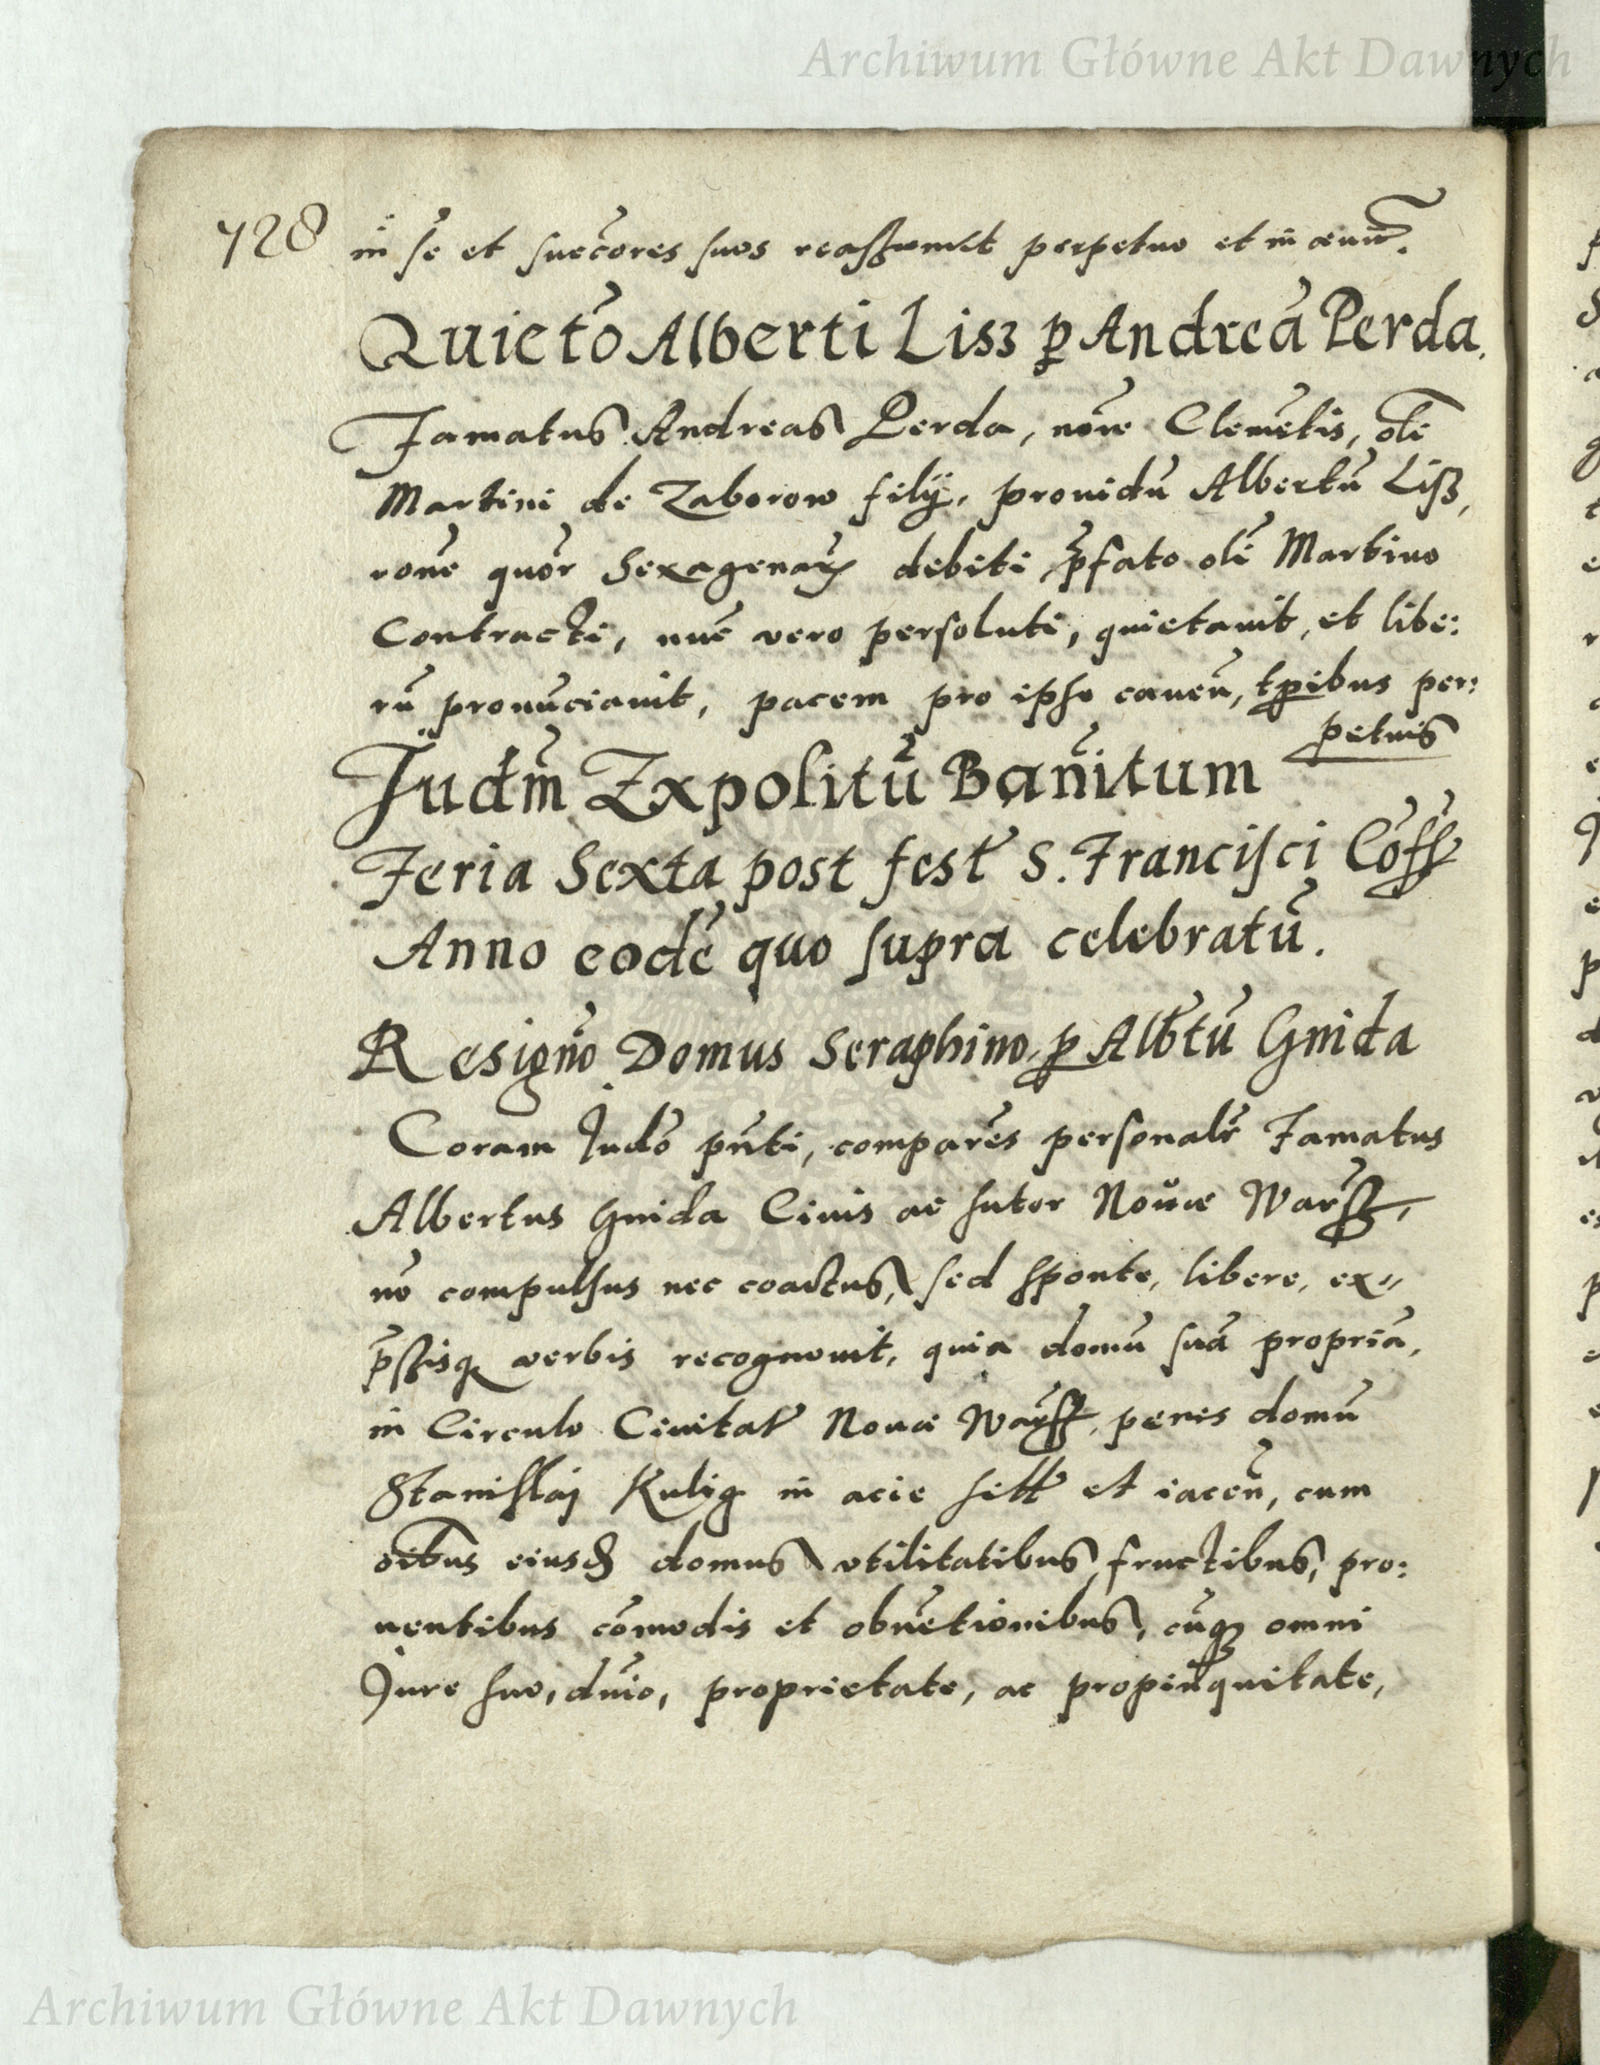 Archiwum Główne Akt Dawnych
728
in se et succ̃ores suos reassumit perpetuo et in aeuũ.
Quietõ Alberti Lisz p Andreã Perda.
Famatus Andreas Perda, noĩe Clemẽtis, olĩ
Martini de Zaborow filij, prouidũ Albertũ Lisz,
rõne quõr sexagenarũ debiti, p̃fato olĩ Martino
Contracti, nũc vero persoluti, quietauit, et libe:
rũ pronũciauit, pacem pro ipso cauen̄, tp̃ibus per:
petuis
Judm̃ Expolitũ Bañitum
Feria Sexta post fest̃ S. Francisci Cõff
Anno eodẽ quo supra celebratũ.
Resignõ Domus Seraphino p Albtũ Gnida
Coram Judõ pñti, comparẽs personalr̃ Famatus
Albertus Gnida Ciuis ac sutor Nouae Warss,
nõ compulsus nec coactus, sed sponte, libere, ex„
p̃ssisq verbis recognouit, quia domũ suã propriã,
in Circulo Ciuitat̃ Nouae Warss, penes domũ
Stanislaj Kulig in acie sitt̃ et iacen̄, cum
oĩbus eiusd domus vtilitatibus, fructibus, pro:
uentibus cõmodis et obuẽtionibus, cũq omni
Jure suo, dñio, proprietate, ac propinquitate,
Archiwum Główne Akt Dawnych